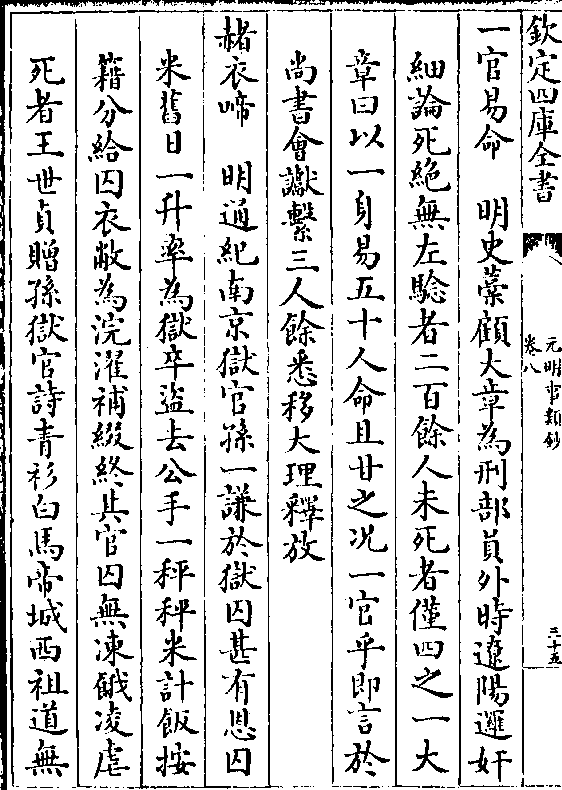 欽定四庫全書
元明事類鈔
卷八
三十五
一官易命　明史藁顧大章為刑部員外時遼陽邏奸
細論死絶無左驗者二百餘人未死者僅四之一大
章曰以一身易五十人命且甘之况一官乎即言於
尚書會讞繫三人餘悉移大理釋放
赭衣啼　明通紀南京獄官孫一謙於獄囚甚有恩囚
米舊日一升率為獄卒盜去公手一秤秤米計飯按
籍分給囚衣敝為浣濯補綴終其官囚無凍餓凌虐
死者王世貞贈孫獄官詩青衫白馬帝城西祖道無